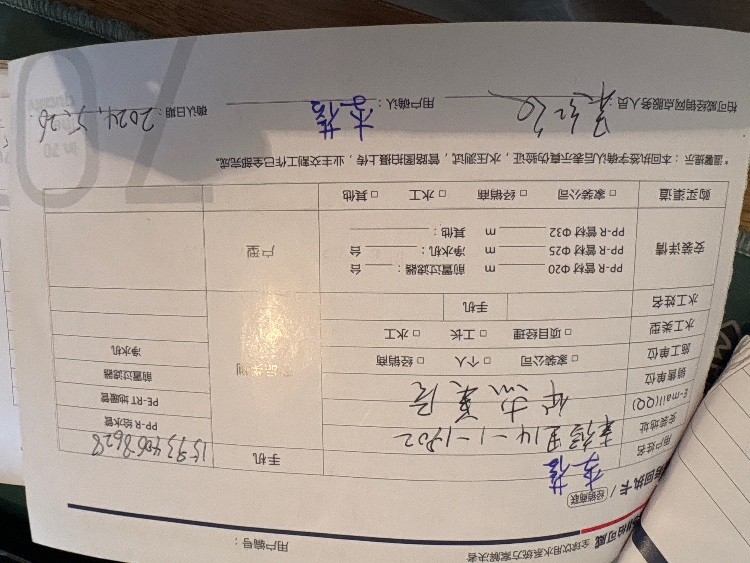 全球饮用水系统方案解决者
用户编号：
回执卡 / 经销商联
用户姓名 李蕴 手机 15934068628
安装地址 14-1-1902
E-mail(QQ)
销售单位
施工单位 □ 家装公司 □ 个人 □ 经销商
水工类型 □ 项目经理 □ 工长 □ 水工
水工姓名 手机
PP-R 给水管
PE-RT 地暖管
前置过滤器
净水机
安装详情 PP-R 管材 Φ20 m 前置过滤器： 台 户型
PP-R 管材 Φ25 m 净水机： 台
PP-R 管材 Φ32 m 其他：
购买渠道 □ 家装公司 □ 经销商 □ 水工 □ 其他
*温馨提示：本回执签字确认后表示真伪验证，水压测试，管路图拍摄上传，业主交割工作已全部完成。
柏可威经销网点服务人员： 用户确认：李蕴 确认日期：2024.5.26